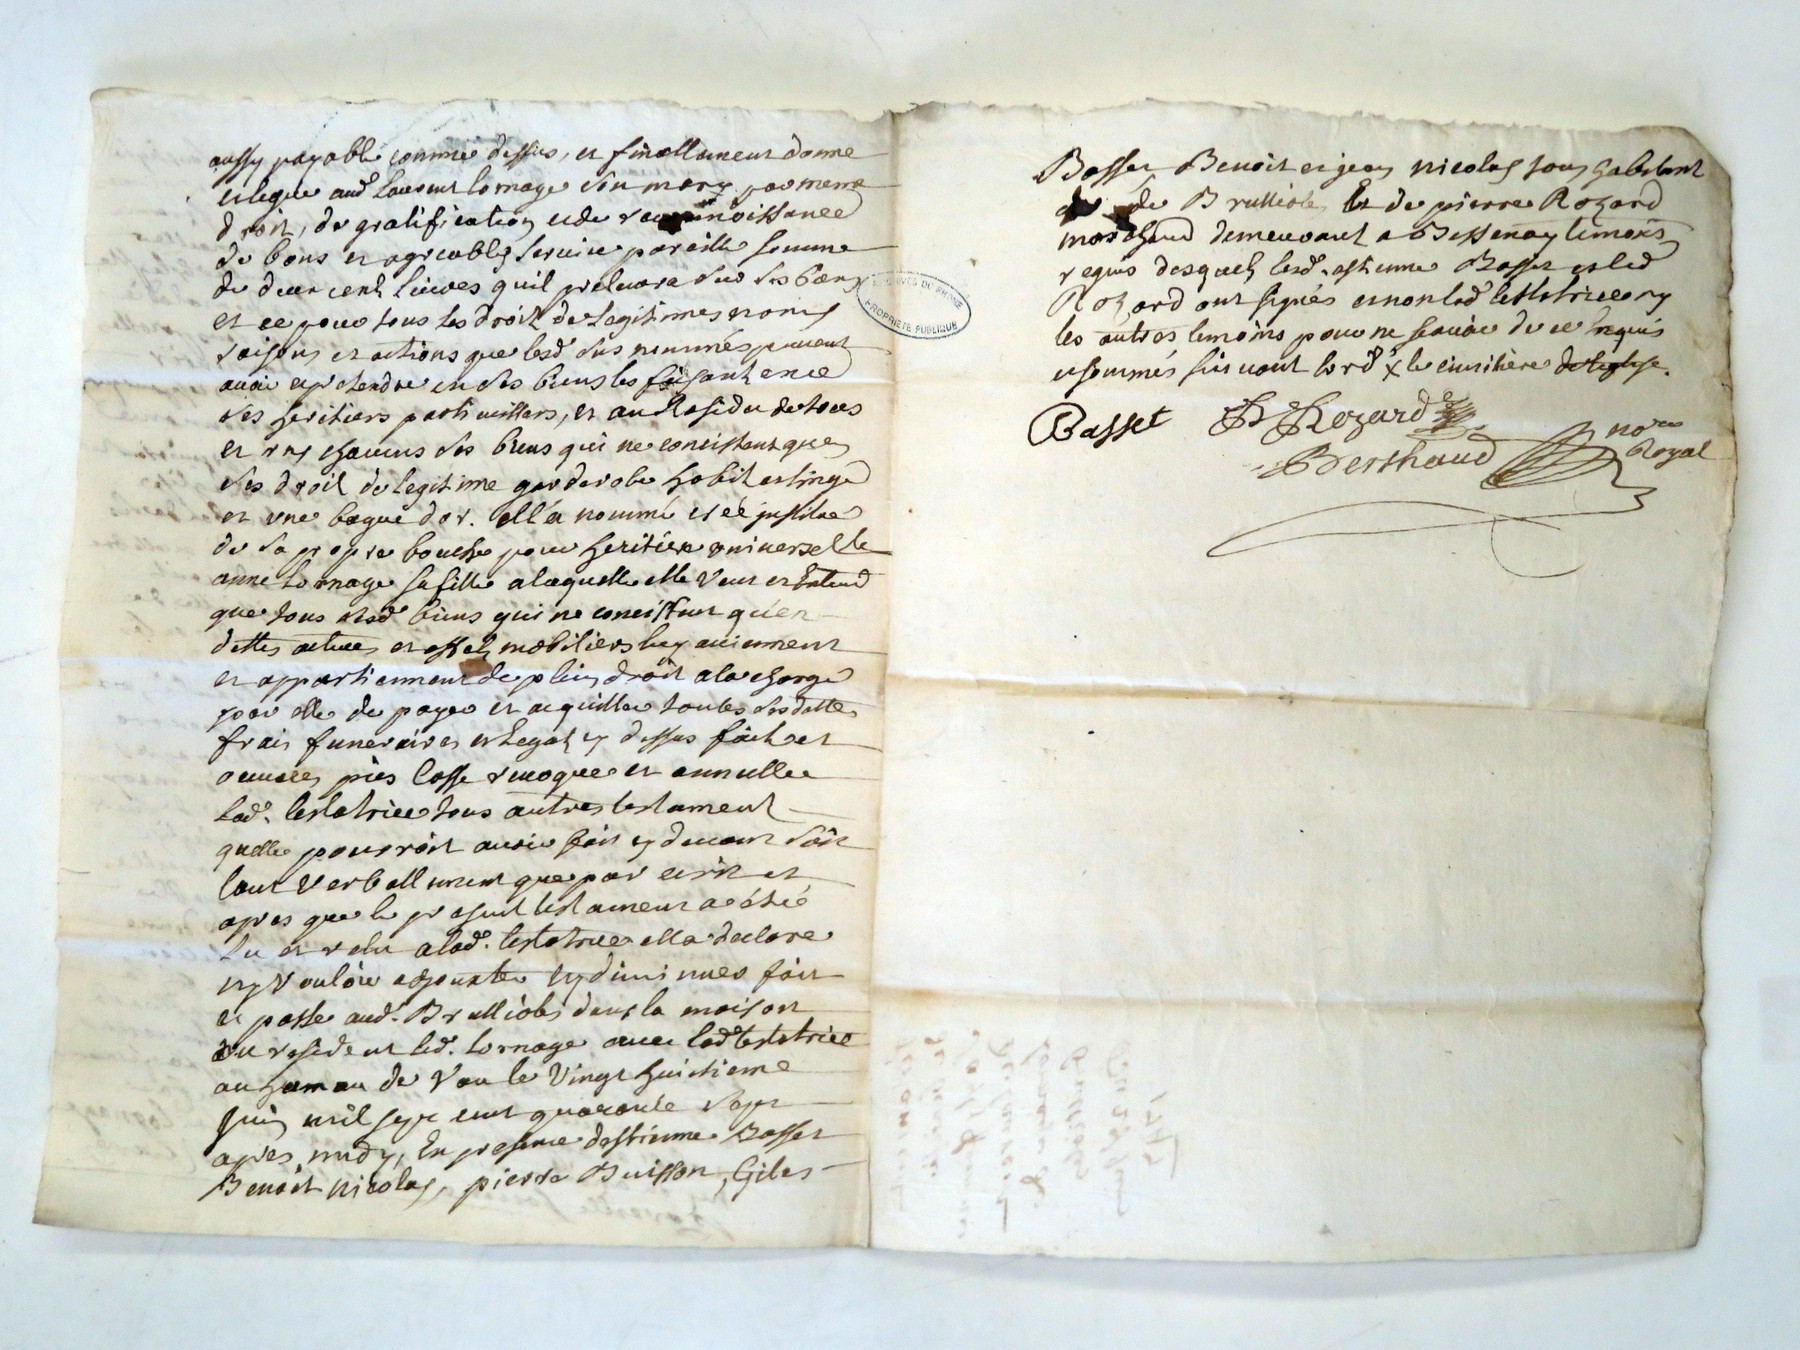 aussy payable comme dessus, et finallement donne
et legue aud. Laurent Lornage son mary par meme
droit, de gratification et de reconnoissance
de bons et agreables service pareille somme
de deux cent livres quil prelevera sur ses biens
et ce pour tous les droit de legitimes noms
raisons et actions que lesd. sus nommés peuvent
avoir et pretendre en ses biens les faisant en ce
ses heritiers particulliers, et au Residu de tous
et uns chacuns ses biens qui ne consistent que
ses droit de legitime garderobe habit et linge
et une bague d'or. ell'a nommé et éé institue
de sa propre bouche pour heritiere universelle
anne Lornage sa fille a laquelle elle veut et Entend
que tous sesd. biens qui ne consistent qu'en
dettes actives et effets mobiliers luy aviennent
et appartiennent de plein droit a la charge
par elle de payer et acquitter toutes ses dettes
frais funeraires et legats cy dessus faits et
casse revoque et annulle
lad. testatrice tous autres testament
quelle pourroit avoir fait cy devant soit
tant verballement que par ecrit et
apres que le present testament a été
lu et relu a lad. testatrice ella declare
ny vouloir adjouter ny diminuer fait
et passe aud. Brullioles dans la maison
ou reside led. Lornage avec lad testatrice
au hameau de Vau le vingt huictieme
Juin mil sept cent quarante sept
apres midy, En presence d'estienne Basset
Benoit Nicolas, pierre Buisson, Giles
Basset Benoit et jean nicolas tous habitant
de Brullioles Et de pierre Rozard
marchand demeurant a Bessenay temoins
requis desquels lesd. estienne Basset et led
Rozard ont signés et non lad. testatrice ny
les autres temoins pour ne scavoir de ce Enquis
et sommés suivant lord. x le cimitière de l'eglise.
Basset Rozard
Berthaud nore
Royal
ARCHIVES DU RHONE
PROPRIETE PUBLIQUE